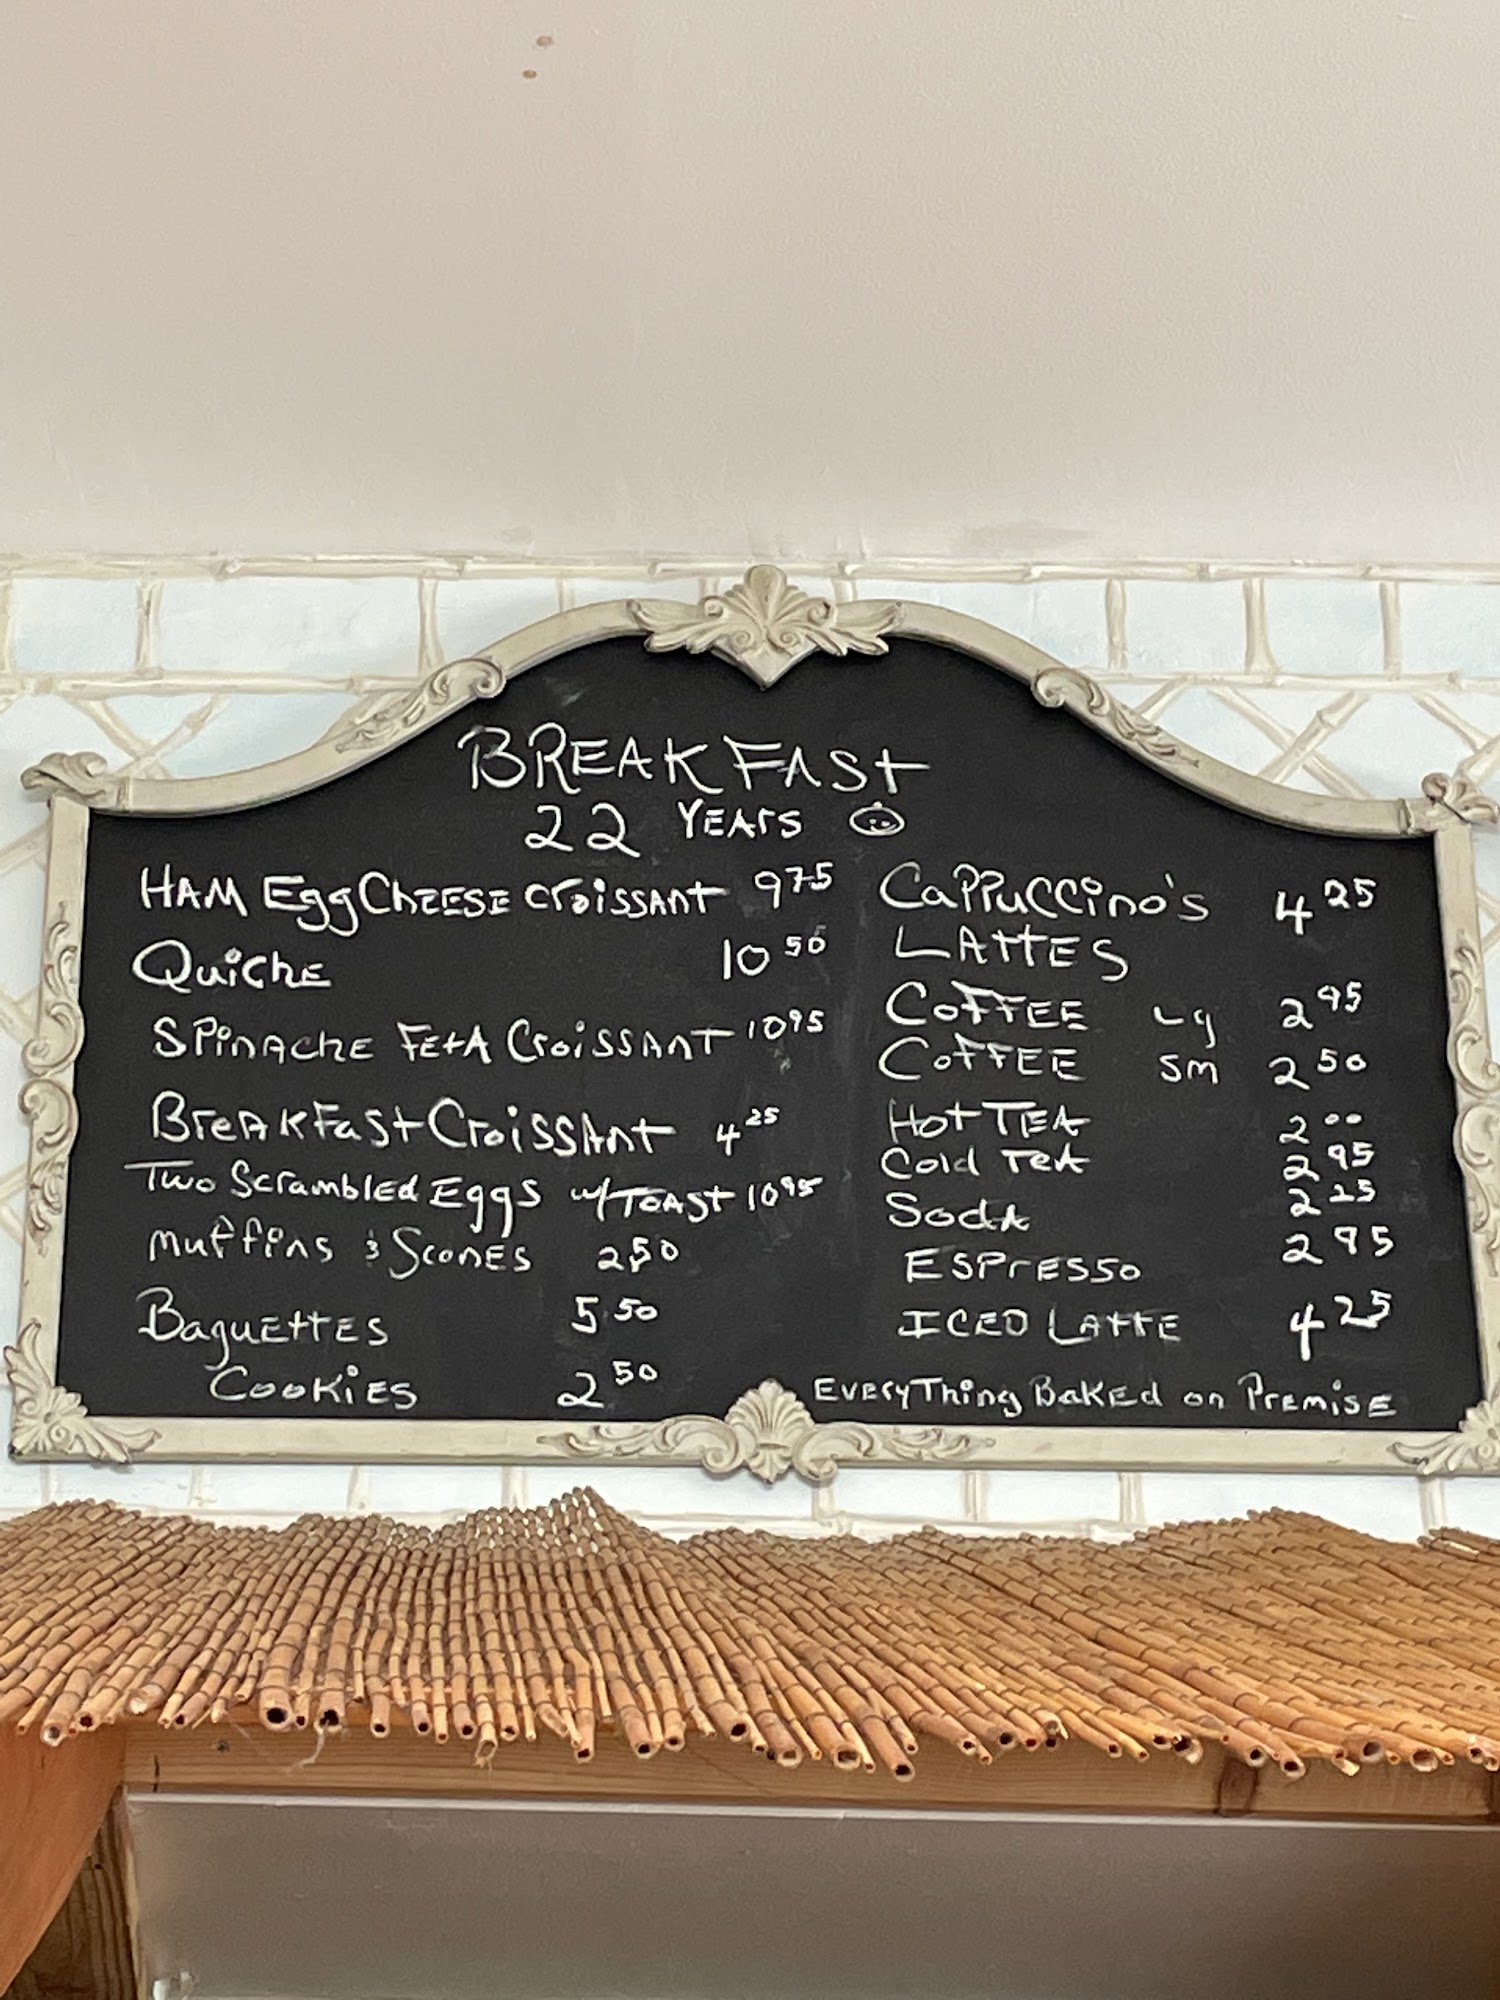 BREAKFAST
22 YEArS
HAM EggCHEESE CroissAnt 9 75
QuicHE 10 50
SPinAcHE FEtA CroissAnt 10 95
BreAKFast CroissAnt 4 25
Two Scrambled Eggs w/ TOASt 10 95
muffins & SconES 2.50
BaguEttES 5 50
COOKiES 2 50
CaPPuccino's 4 25
LAttES
COFFEE Lg 2 95
COFFEE Sm 2 50
Hot TEA 2 00
Cold TEA 2 95
SodA 2 25
ESPrESSo 2 95
ICED LAttE 4 25
EveryThing BaKEd on PremisE